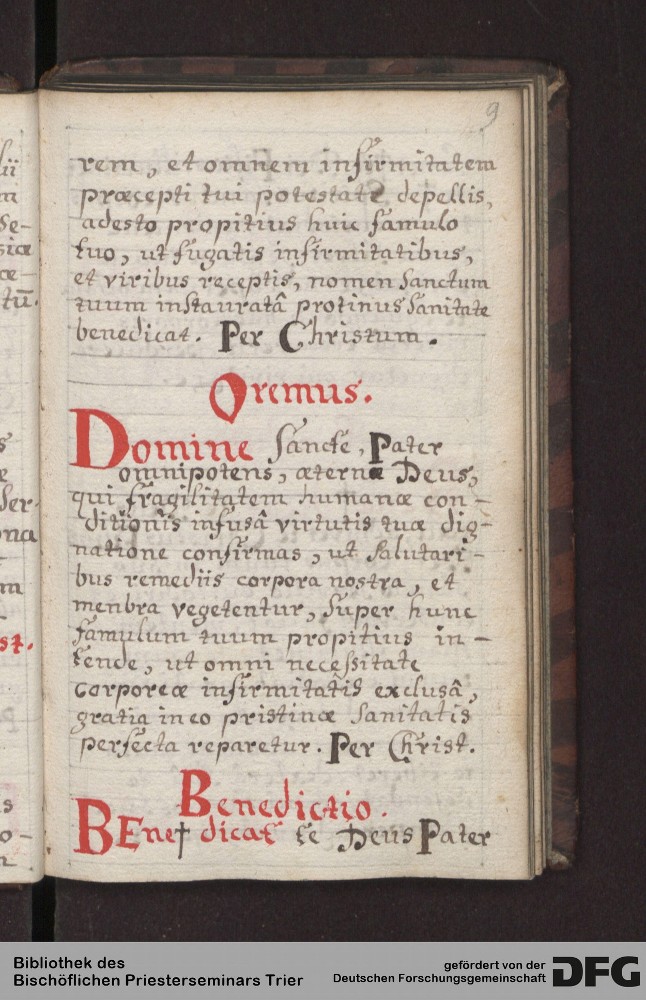 9
rem, et omnem infirmitatem
præcepti tui potestate depellis,
adesto propitius huic famulo
tuo, ut fugatis infirmitatibus,
et viribus receptis, nomen Sanctum
tuum instauratâ protinus Sanitate
benedicat. Per Christum.
Oremus.
Domine Sancte, Pater
omnipotens, æternæ Deus,
qui fragilitatem humanæ con-
ditionis infusâ virtutis tuæ dig-
natione confirmas, ut Salutari-
bus remediis corpora nostra, et
menbra vegetentur, Super hunc
famulum tuum propitius in-
tende, ut omni necessitate
corporeæ infirmitatis exclusâ,
gratia in eo pristinæ Sanitatis
perfecta reparetur. Per Christ.
Benedictio.
BEne†dicat te Deus Pater
Bibliothek des
Bischöflichen Priesterseminars Trier
gefördert von der
Deutschen Forschungsgemeinschaft
DFG